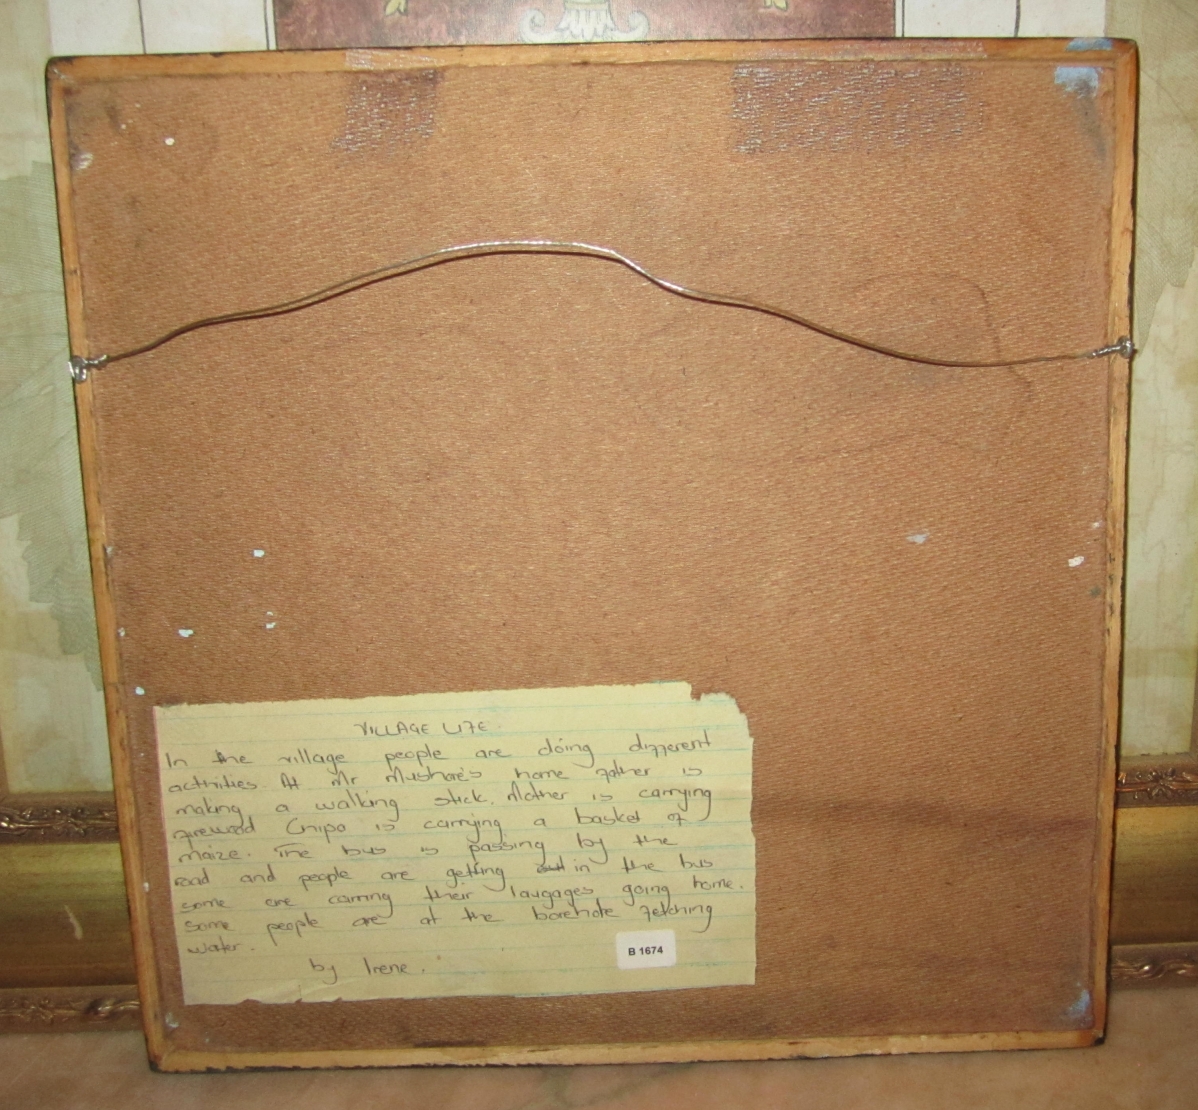 VILLAGE LIFE
In the village people are doing different
activities At Mr Mushore's home father is
making a walking stick. Mother is carrying
firewood Chipo is carrying a basket of
maize. The bus is passing by the
road and people are getting in the bus
some are carring their laugages going home.
some people are at the borehole fetching
water.
by Irene.
B 1674